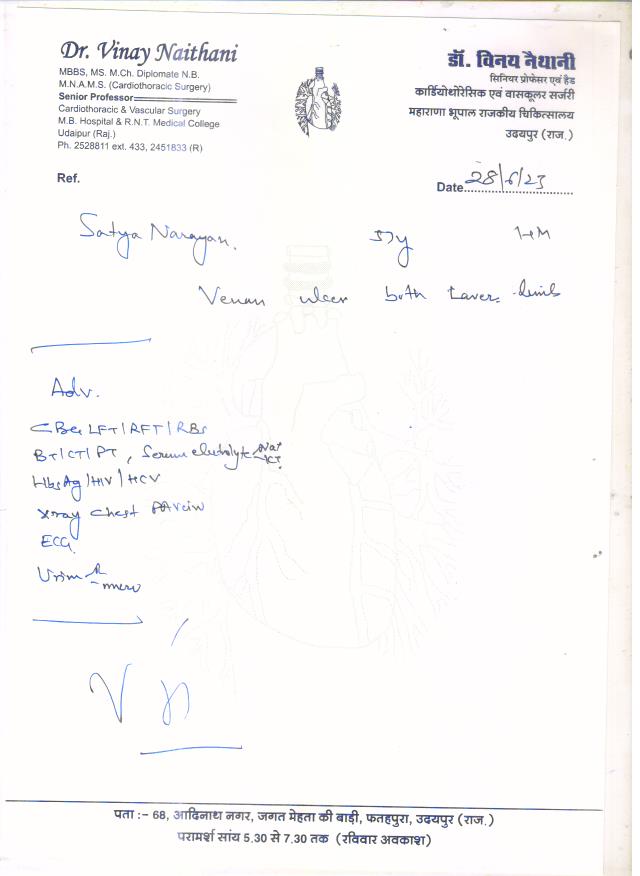 Dr. Vinay Naithani
MBBS, MS. M.Ch. Diplomate N.B.
M.N.A.M.S. (Cardiothoracic Surgery)
Senior Professor
Cardiothoracic & Vascular Surgery
M.B. Hospital & R.N.T. Medical College
Udaipur (Raj.)
Ph. 2528811 ext. 433, 2451833 (R)
डॉ. विनय नैथानी
सिनियर प्रोफेसर एवं हैड
कार्डियोथोरेसिक एवं वासकूलर सर्जरी
महाराणा भूपाल राजकीय चिकित्सालय
उदयपुर (राज.)
Ref.
Date 28/6/23
Satya Narayan.
ulcer both Lower limb
Adv.
CBC LFT/RFT/RBS
BT/CT/PT, Serum electrolyte Na+ K+
HbsAg/HIV/HCV
Xray Chest PA view
ECG.
Urine R
पता :- 68, आदिनाथ नगर, जगत मेहता की बाड़ी, फतहपुरा, उदयपुर (राज.)
परामर्श सांय 5.30 से 7.30 तक (रविवार अवकाश)